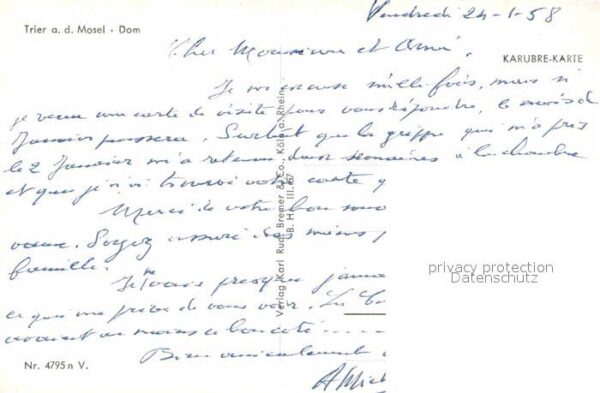 Vendredi 24-1-58
Trier a. d. Mosel · Dom
Cher Monsieur et Ami,
KARUBRE-KARTE
Je m'excuse mille fois, mais si
je veux une carte de visite pour vous répondre, le mois de
Janvier passera. Surtout que la grippe qui m'a pris
le 2 Janvier m'a retenu deux semaines à la chambre
et que je n'ai trouvé votre carte q
Merci de votre bon
vœux. Soyez assuré des miens p
famille.
Je ne vous presque jama
ce qui me prive de vous voir. Les
avaient au moins ce bon côté ....
Bien amicalement
AMich
Verlag Karl Rud. Bremer & Co. Köln a. Rhein
B. H. III. 67
privacy protection
Datenschutz
Nr. 4795 n V.